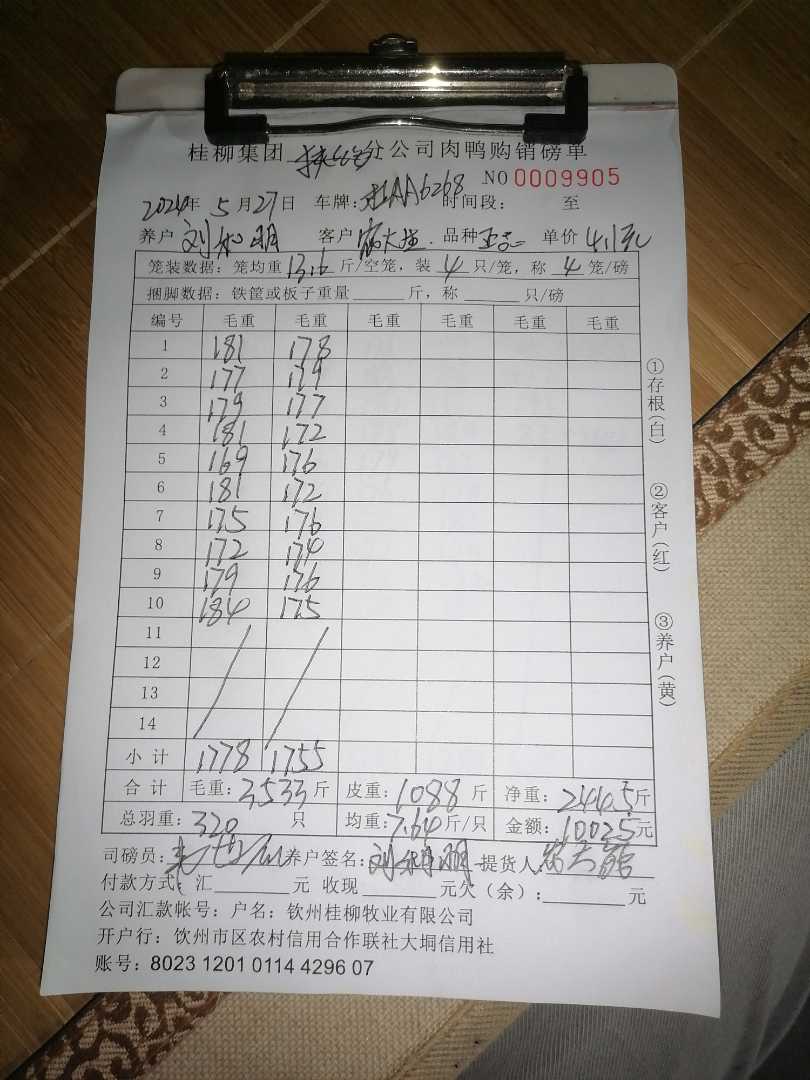 桂柳集团 分公司肉鸭购销磅单
NO 0009905
2024年 5月27日 车牌: AA6268 时间段: 至
养户 刘 明 客户 品种 单价 4.1元
笼装数据: 笼均重13.6斤/空笼, 装4只/笼, 称4笼/磅
捆脚数据: 铁筐或板子重量______斤, 称______只/磅
编号 毛重 毛重 毛重 毛重 毛重 毛重
1 181 178
2 177 179
3 179 177
4 181 172
5 169 176
6 181 172
7 175 176
8 172 174
9 179 176
10 184 175
11
12
13
14
小计 1778 1755
合计 毛重: 3533斤 皮重: 1088斤 净重: 斤
总羽重: 320 只 均重: 7.64斤/只 金额: 10025元
司磅员: 养户签名: 刘 明 提货人:
付款方式: 汇______元 收现______元欠(余): ______元
公司汇款帐号: 户名: 钦州桂柳牧业有限公司
开户行: 钦州市区农村信用合作联社大垌信用社
账号: 8023 1201 0114 4296 07
①存根(白)
②客户(红)
③养户(黄)